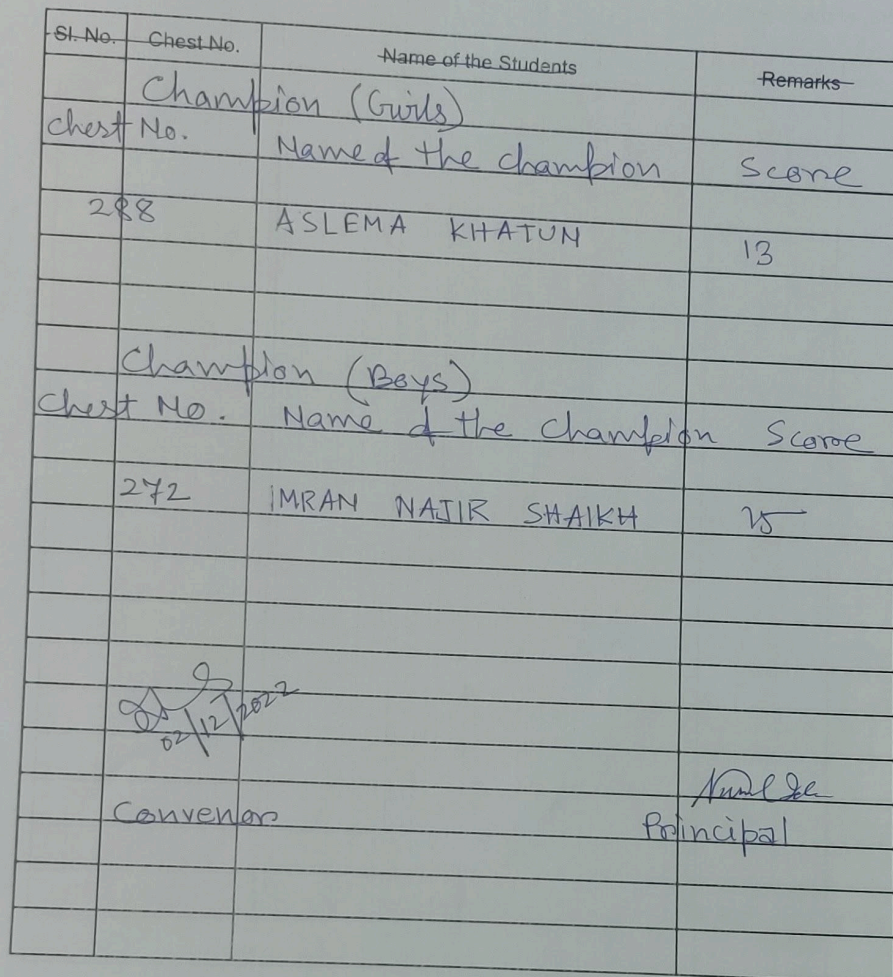 Sl. No. Chest No. Name of the Students Remarks
Champion (Girls)
Chest No. Name of the Champion Score
288 ASLEMA KHATUN 13
Champion (Boys)
Chest No. Name of the Champion Score
272 IMRAN NAJIR SHAIKH 25
02/12/2022
Convenor Principal